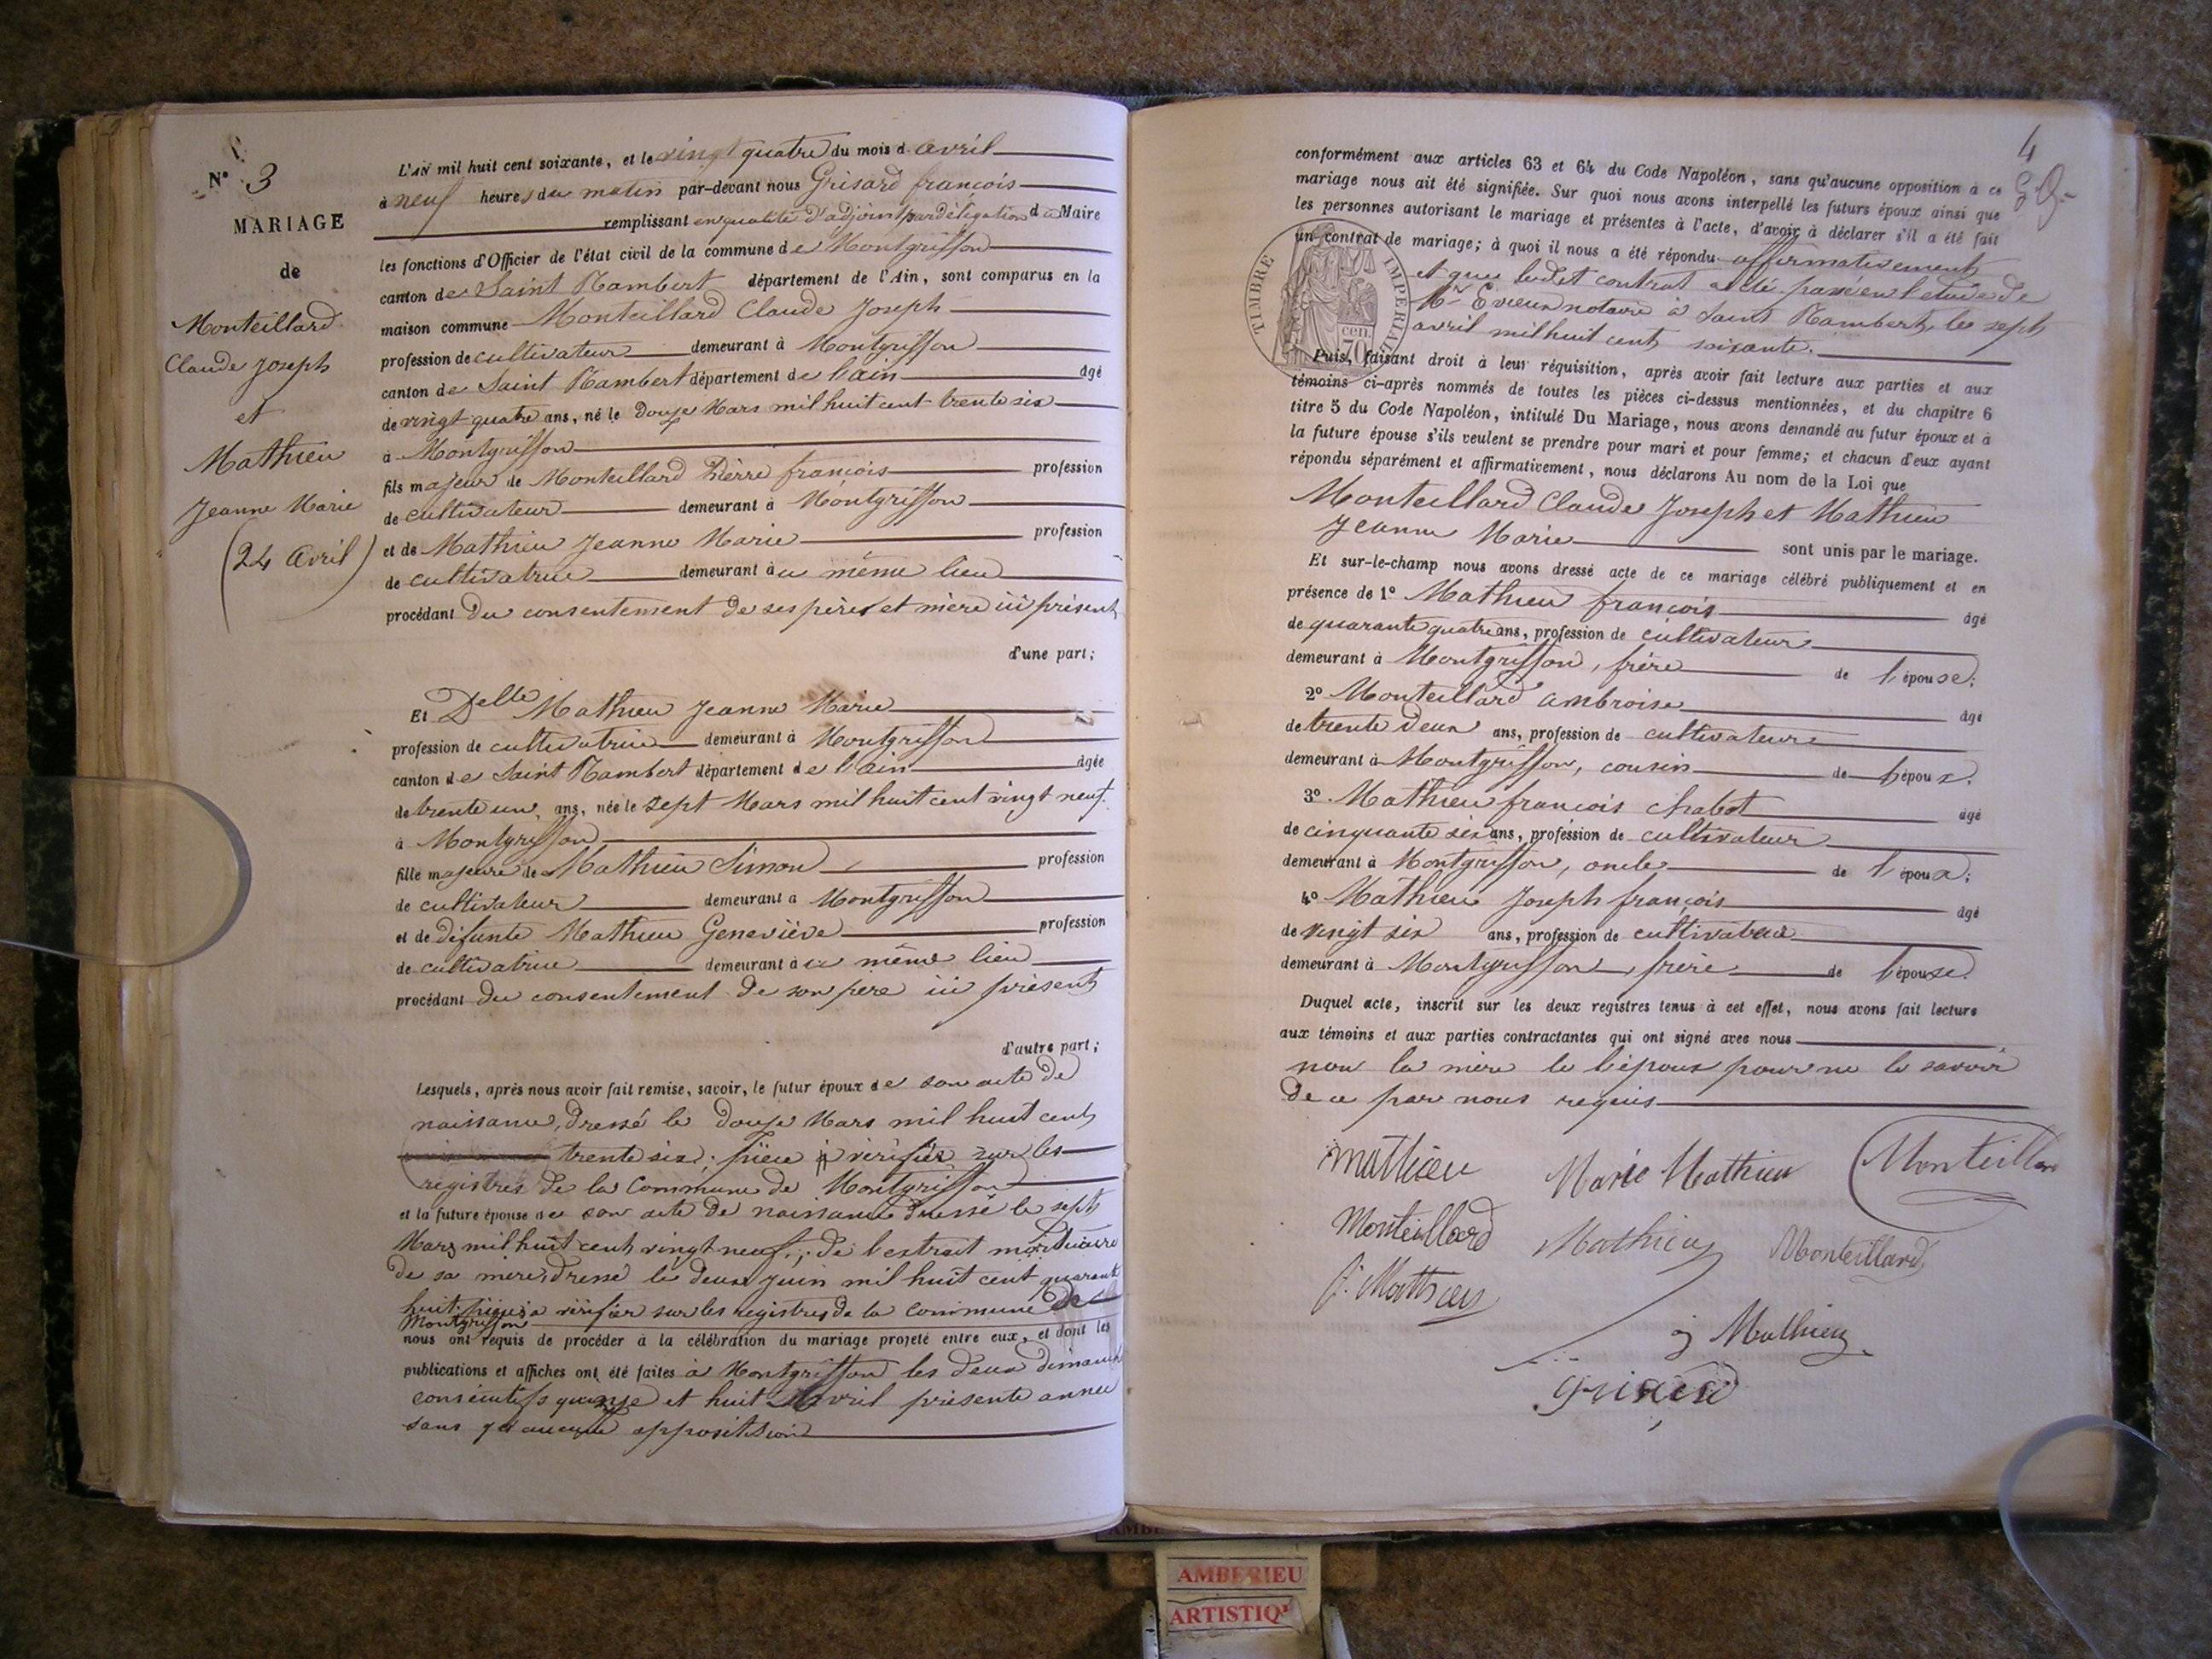 N° 3
MARIAGE
de
Monteillard
Claude Joseph
et
Mathieu
Jeanne Marie
(24 Avril)
L'AN mil huit cent soixante, et le vingt quatre du mois d avril
à neuf heures du matin par-devant nous Grisard françois
remplissant en qualité d'adjoint par délégation du Maire
les fonctions d'Officier de l'état civil de la commune de Montgriffon
canton de Saint Rambert département de l'Ain, sont comparus en la
maison commune Monteillard Claude Joseph
profession de cultivateur demeurant à Montgriffon
canton de Saint Rambert département de l'ain âgé
de vingt quatre ans, né le Douze Mars mil huit cent trente six
à Montgriffon
fils majeur de Monteillard Pierre françois profession
de cultivateur demeurant à Montgriffon
et de Mathieu Jeanne Marie profession
de cultivatrice demeurant au même lieu
procédant Du consentement de ses père et mère ici présent
d'une part;
Et Delle Mathieu Jeanne Marie
profession de cultivatrice demeurant à Montgriffon
canton de Saint Rambert département de l'ain âgée
de trente un ans, née le sept Mars mil huit cent vingt neuf
à Montgriffon
fille majeure de Mathieu Simon profession
de cultivateur demeurant à Montgriffon
et de défunte Mathieu Geneviève profession
de cultivatrice demeurant au même lieu
procédant du consentement de son père ici présent
d'autre part;
Lesquels, après nous avoir fait remise, savoir, le futur époux de son acte de
naissance, dressé le douze Mars mil huit cent
trente six; pièce à vérifier sur les
registres de la Commune de Montgriffon
et la future épouse de son acte de naissance dressé le sept
Mars mil huit cent vingt neuf; de l'extrait mortuaire
de sa mère, dressé le deux Juin mil huit cent quarante
huit. pièces à vérifier sur les registres de la commune de
Montgriffon
nous ont requis de procéder à la célébration du mariage projeté entre eux, et dont les
publications et affiches ont été faites à Montgriffon les deux dimanch
consécutifs quinze et huit Avril présente année
sans qu'aucune opposition
4
conformément aux articles 63 et 64 du Code Napoléon, sans qu'aucune opposition à ce
mariage nous ait été signifiée. Sur quoi nous avons interpellé les futurs époux ainsi que
les personnes autorisant le mariage et présentes à l'acte, d'avoir à déclarer s'il a été fait
un contrat de mariage; à quoi il nous a été répondu affirmativement
et que ledit contrat a été passé en l'étude de
notaire à Saint Rambert, le sept
avril mil huit cent soixante.
TIMBRE IMPERIAL
70 cen.
Puis, faisant droit à leur réquisition, après avoir fait lecture aux parties et aux
témoins ci-après nommés de toutes les pièces ci-dessus mentionnées, et du chapitre 6
titre 5 du Code Napoléon, intitulé Du Mariage, nous avons demandé au futur époux et à
la future épouse s'ils veulent se prendre pour mari et pour femme; et chacun d'eux ayant
répondu séparément et affirmativement, nous déclarons Au nom de la Loi que
Monteillard Claude Joseph et Mathieu
Jeanne Marie sont unis par le mariage.
Et sur-le-champ nous avons dressé acte de ce mariage célébré publiquement et en
présence de 1° Mathieu françois âgé
de quarante quatre ans, profession de cultivateur
demeurant à Montgriffon, frère de l'épouse;
2° Monteillard ambroise âgé
de trente deux ans, profession de cultivateur
demeurant à Montgriffon, cousin de l'époux.
3° Mathieu françois chabot âgé
de cinquante six ans, profession de cultivateur
demeurant à Montgriffon, oncle de l'époux;
4° Mathieu Joseph françois âgé
de vingt six ans, profession de cultivateur
demeurant à Montgriffon, frère de l'épouse.
Duquel acte, inscrit sur les deux registres tenus à cet effet, nous avons fait lecture
aux témoins et aux parties contractantes qui ont signé avec nous
non la mère de l'époux pour ne le savoir
de ce par nous requis
Mathieu Marie Mathieu Monteillard
Monteillard Mathieu Monteillard
f. Mathieu
j Mathieu
Grisard
AMBERIEU
ARTISTIQU